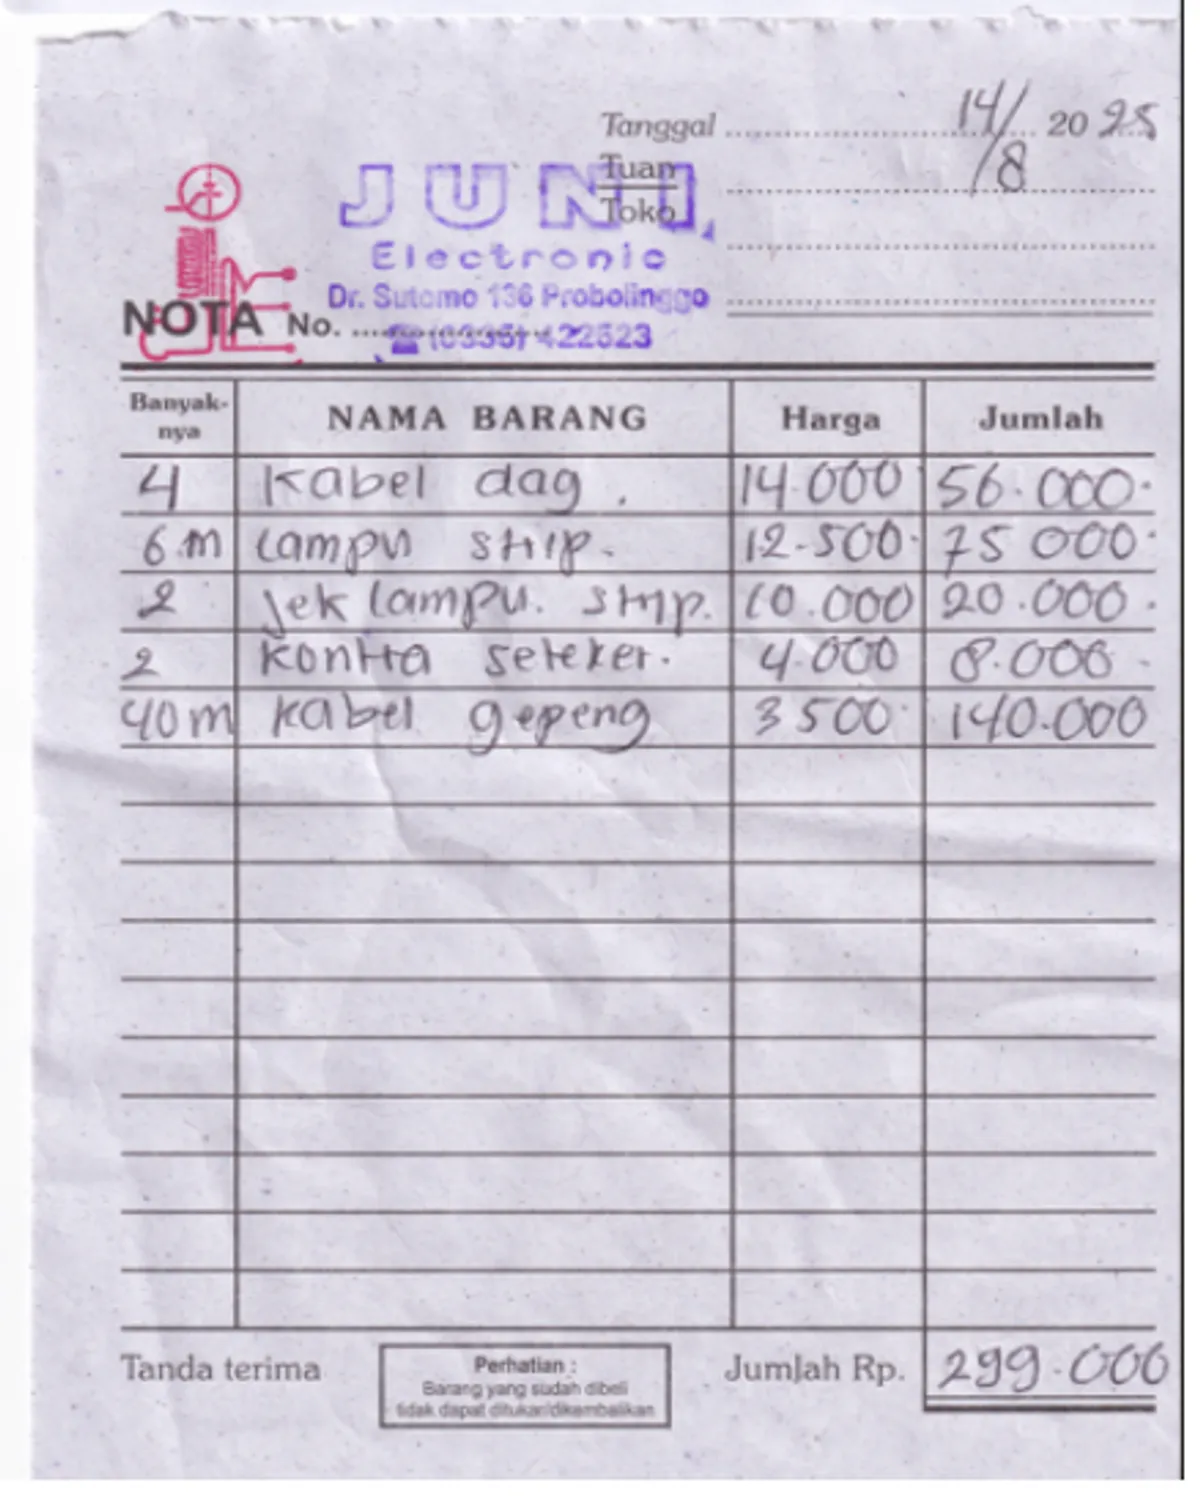 Tanggal .......... 14/8 2025
Tuan
Toko
JUNI
Electronic
Dr. Sutomo 136 Probolinggo
NOTA No. ..........
☎ (0335) 422523
Banyak-nya NAMA BARANG Harga Jumlah
4 Kabel dag. 14.000 56.000.
6 m lampu strip. 12.500. 75 000.
2 jek lampu. strip. 10.000 20.000.
2 kontra seteker. 4.000 8.000.
40 m kabel gepeng 3 500. 140.000
Tanda terima
Perhatian :
Barang yang sudah dibeli
tidak dapat ditukar/dikembalikan
Jumlah Rp. 299.000